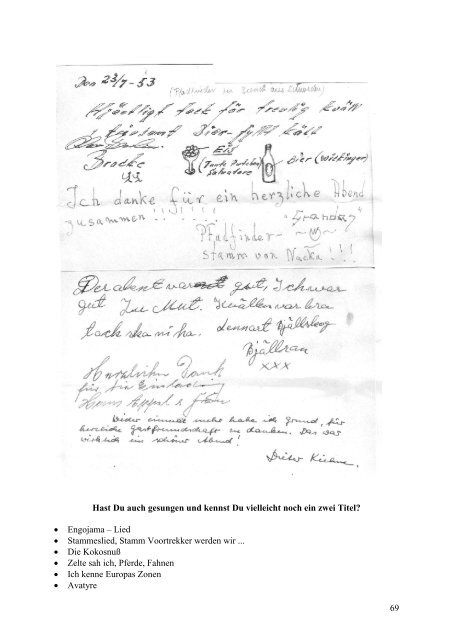 Den 23/7-53
(Pfadfinder zu Besuch aus Schweden)
Hjärtligt tack för trevlig kväll
Bier-fyllt kväll
Brocke
EIS
(Tante
Salvatore
Bier (Wickinger)
Ich danke für ein herzliche Abend
zusammen !!!!!!!!
"Grandas"
Pfadfinder-
stamm von Nacka!!!
Der abent var gut, Ich war
gut Zu Mut. Kvällen var bra
tack ska ni ha. Lennart
Bjällran
xxx
Herzlichen Dank
für die Einladung
Hans Appel
Wieder einmal mehr habe ich Grund, für
herzliche Gastfreundschaft zu danken. Das war
wirklich ein schöner Abend!
Dieter
Hast Du auch gesungen und kennst Du vielleicht noch ein zwei Titel?
• Engojama – Lied
• Stammeslied, Stamm Voortrekker werden wir ...
• Die Kokosnuß
• Zelte sah ich, Pferde, Fahnen
• Ich kenne Europas Zonen
• Avatyre
69